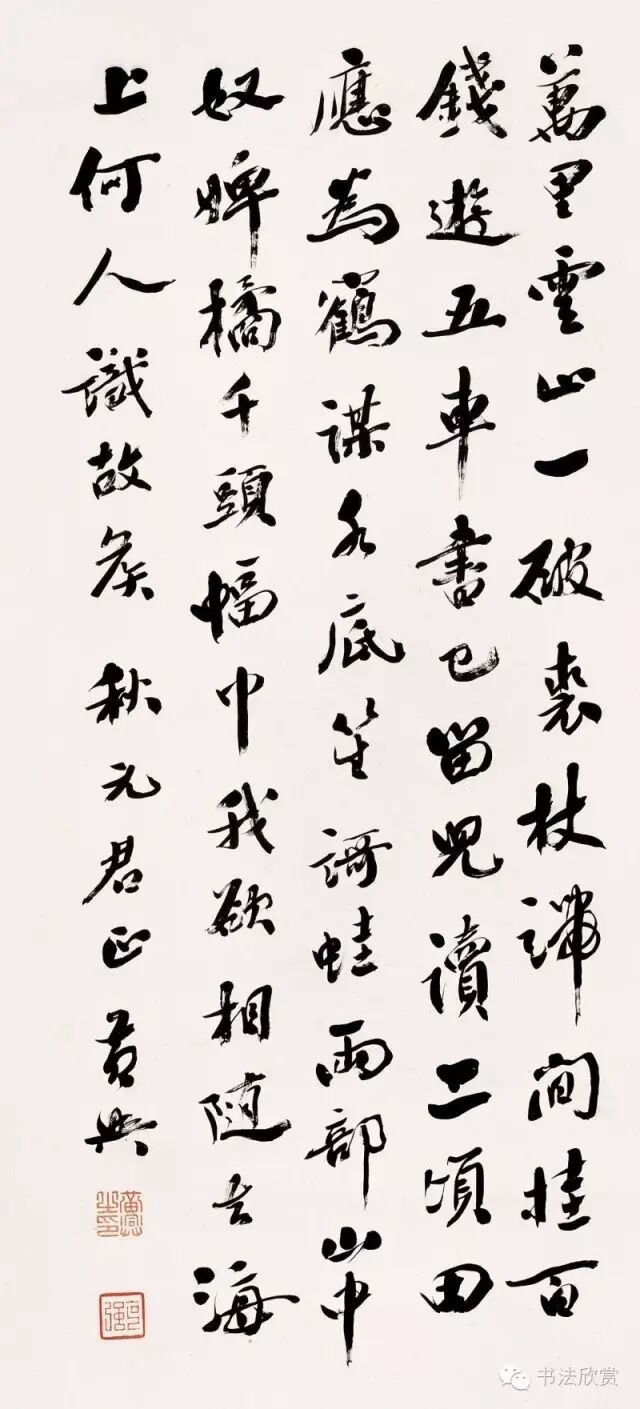 萬里雲山一破裘杖端間挂百
錢遊五車書已留兒讀二頃田
應為鶴謀水底笙謌蛙兩部山中
奴婢橘千頭幅巾我欲相隨去海
上何人識故侯 秋元君正 黃興
黃興之印
书法欣赏